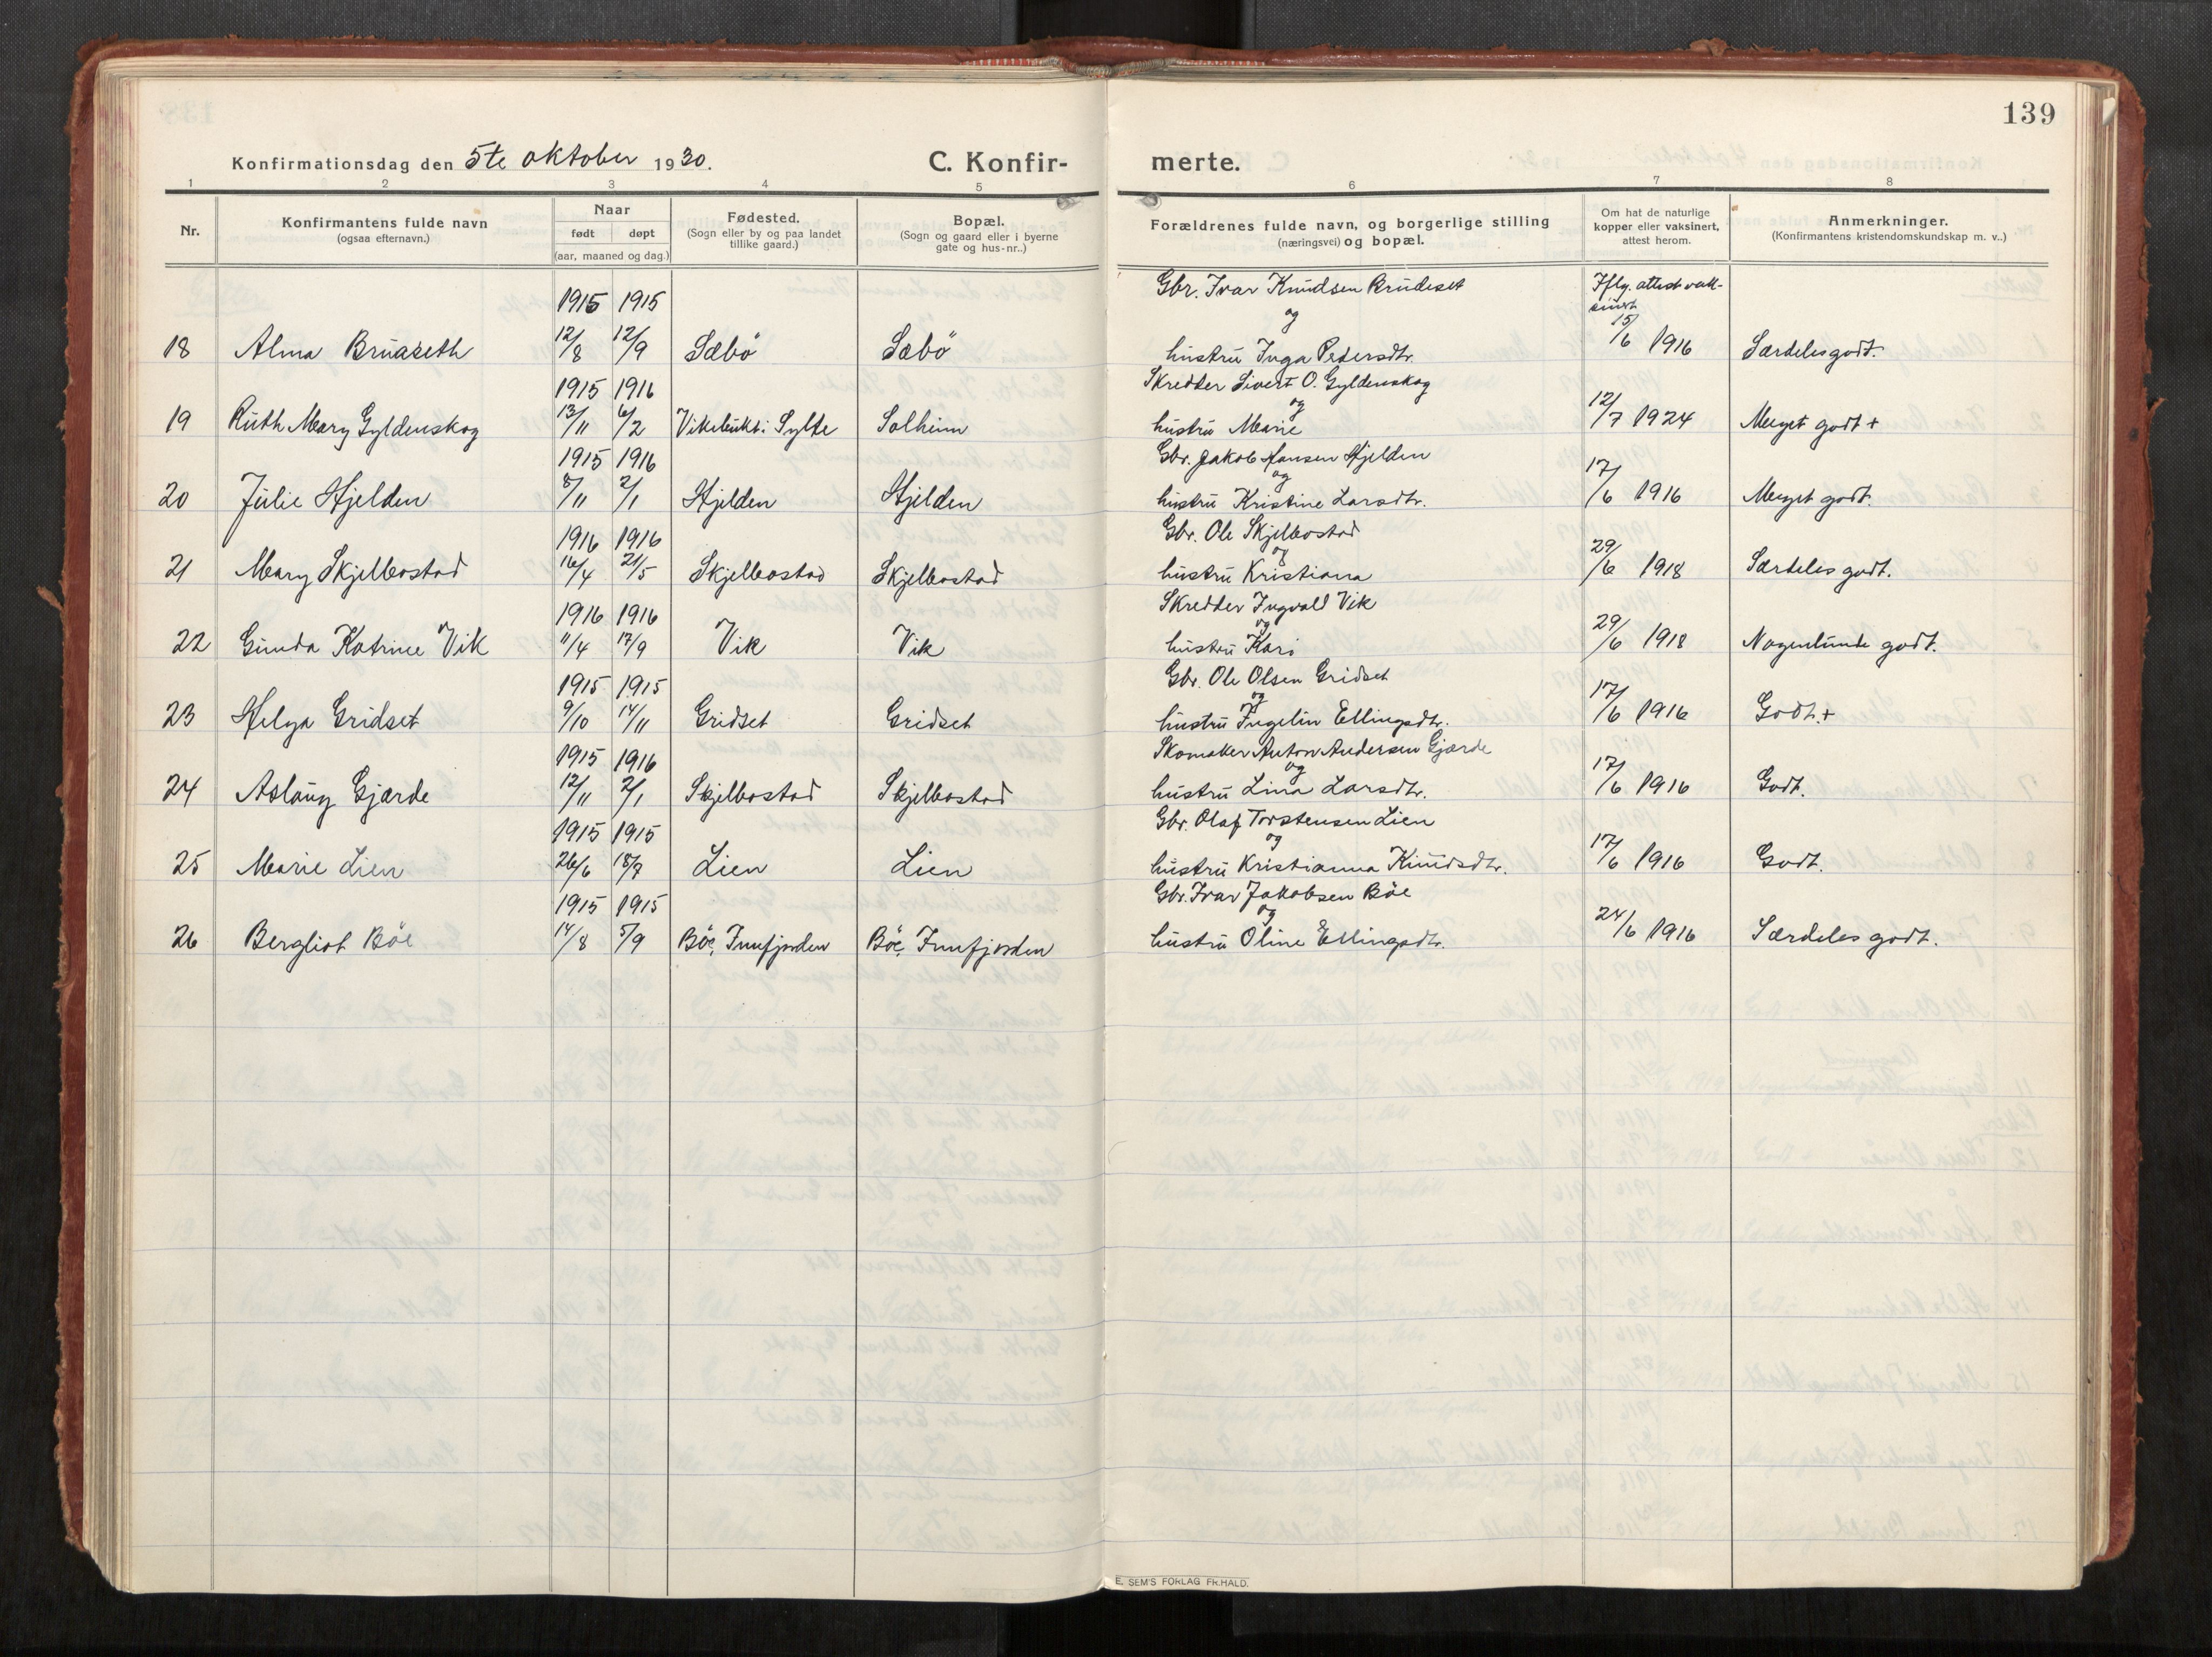 139
Konfirmationsdag den 5te oktober 1930.
C. Konfir-
merte.
1 2 3 4 5 6 7 8
Nr.
Konfirmantens fulde navn
(ogsaa efternavn.)
Naar
født døpt
(aar, maaned og dag.)
Fødested.
(Sogn eller by og paa landet
tillike gaard.)
Bopæl.
(Sogn og gaard eller i byerne
gate og hus-nr..)
Forældrenes fulde navn, og borgerlige stilling
(næringsvei) og bopæl.
Om hat de naturlige
kopper eller vaksinert,
attest herom.
Anmerkninger.
(Konfirmantens kristendomskundskap m. v..)
1915 1915 Gbr. Ivar Knudsen Bruaset Iflg. attest vak-
og sinert
18 Alma Bruaseth 12/8 12/9 Sæbö Sæbö hustru Inga Petersdtr. 15/6 1916 Særdeles godt.
1915 1916 Skredder Sivert O. Gyldenskog
og
19 Ruth Mary Gyldenskog 13/11 6/2 Vikebukt i Sylte Solheim hustru Marie 12/7 1924 Meget godt +
1915 1916 Gbr. Jakob Hansen Hjelden
og
20 Julie Hjelden 8/11 2/1 Hjelden Hjelden hustru Kristine Larsdtr. 17/6 1916 Meget godt.
1916 1916 Gbr. Ole Skjelbostad
og
21 Mary Skjelbostad 16/4 21/5 Skjelbostad Skjelbostad hustru Kristiana 29/6 1918 Særdeles godt.
1916 1916 Skredder Ingvald Vik
og
22 Gunda Katrine Vik 11/4 17/9 Vik Vik hustru Kari 29/6 1918 Nogenlunde godt.
1915 1915 Gbr. Ole Olsen Gridset
og
23 Helga Gridset 9/10 14/11 Gridset Gridset hustru Ingelin Ellingsdtr. 17/6 1916 Godt.+
1915 1916 Skomaker Anton Andersen Gjærde
og
24 Aslaug Gjærde 12/11 2/1 Skjelbostad Skjelbostad hustru Lina Larsdtr. 17/6 1916 Godt.
1915 1915 Gbr. Olaf Torstensen Lien
og
25 Marie Lien 26/6 18/7 Lien Lien hustru Kristianna Knudsdtr. 17/6 1916 Godt.
1915 1915 Gbr. Ivar Jakobsen Böe
og
26 Bergliot Böe 14/8 5/9 Böe, Innfjorden Böe, Innfjorden hustru Oline Ellingsdtr. 24/6 1916 Særdeles godt.
E. SEM'S FORLAG FR.HALD.